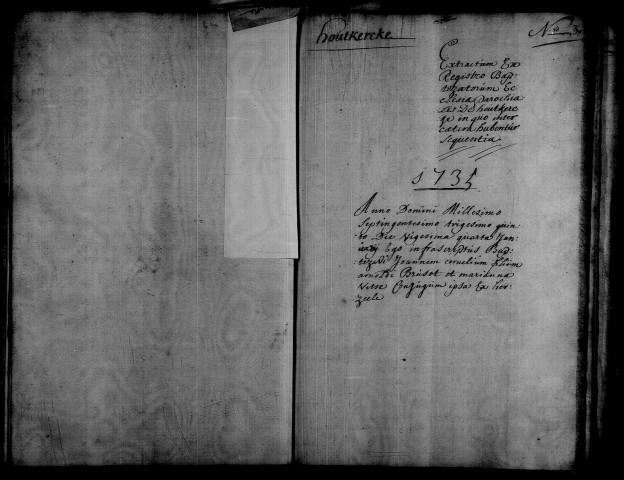 houtkercke
No 3
Extractum Ex
Registro Bap-
tizatorum Ec
clesiæ parochia
les De houtkerc
ke in quo inter
cætera habentur
sequentia
1735
Anno Domini Millesimo
septingentesimo trigesimo quin-
to Die vigesima quarta Jan-
uarij Ego infrascriptus Bap-
tizavi Joannem cornelium filium
arnoldi Brusot et mariannæ
Conjugum ipsa Ex her-
zeele